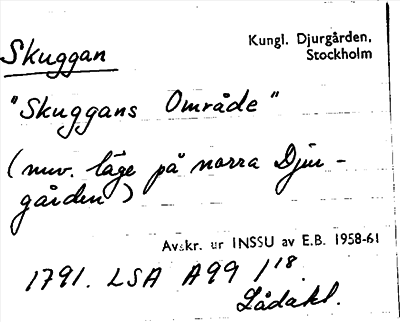 Skuggan
Kungl. Djurgården,
Stockholm
"Skuggans Område"
(nuv. läge på norra Djur-
gården)
Avskr. ur INSSU av E.B. 1958-61
1791. LSA A99 1/18.
Lådakt.